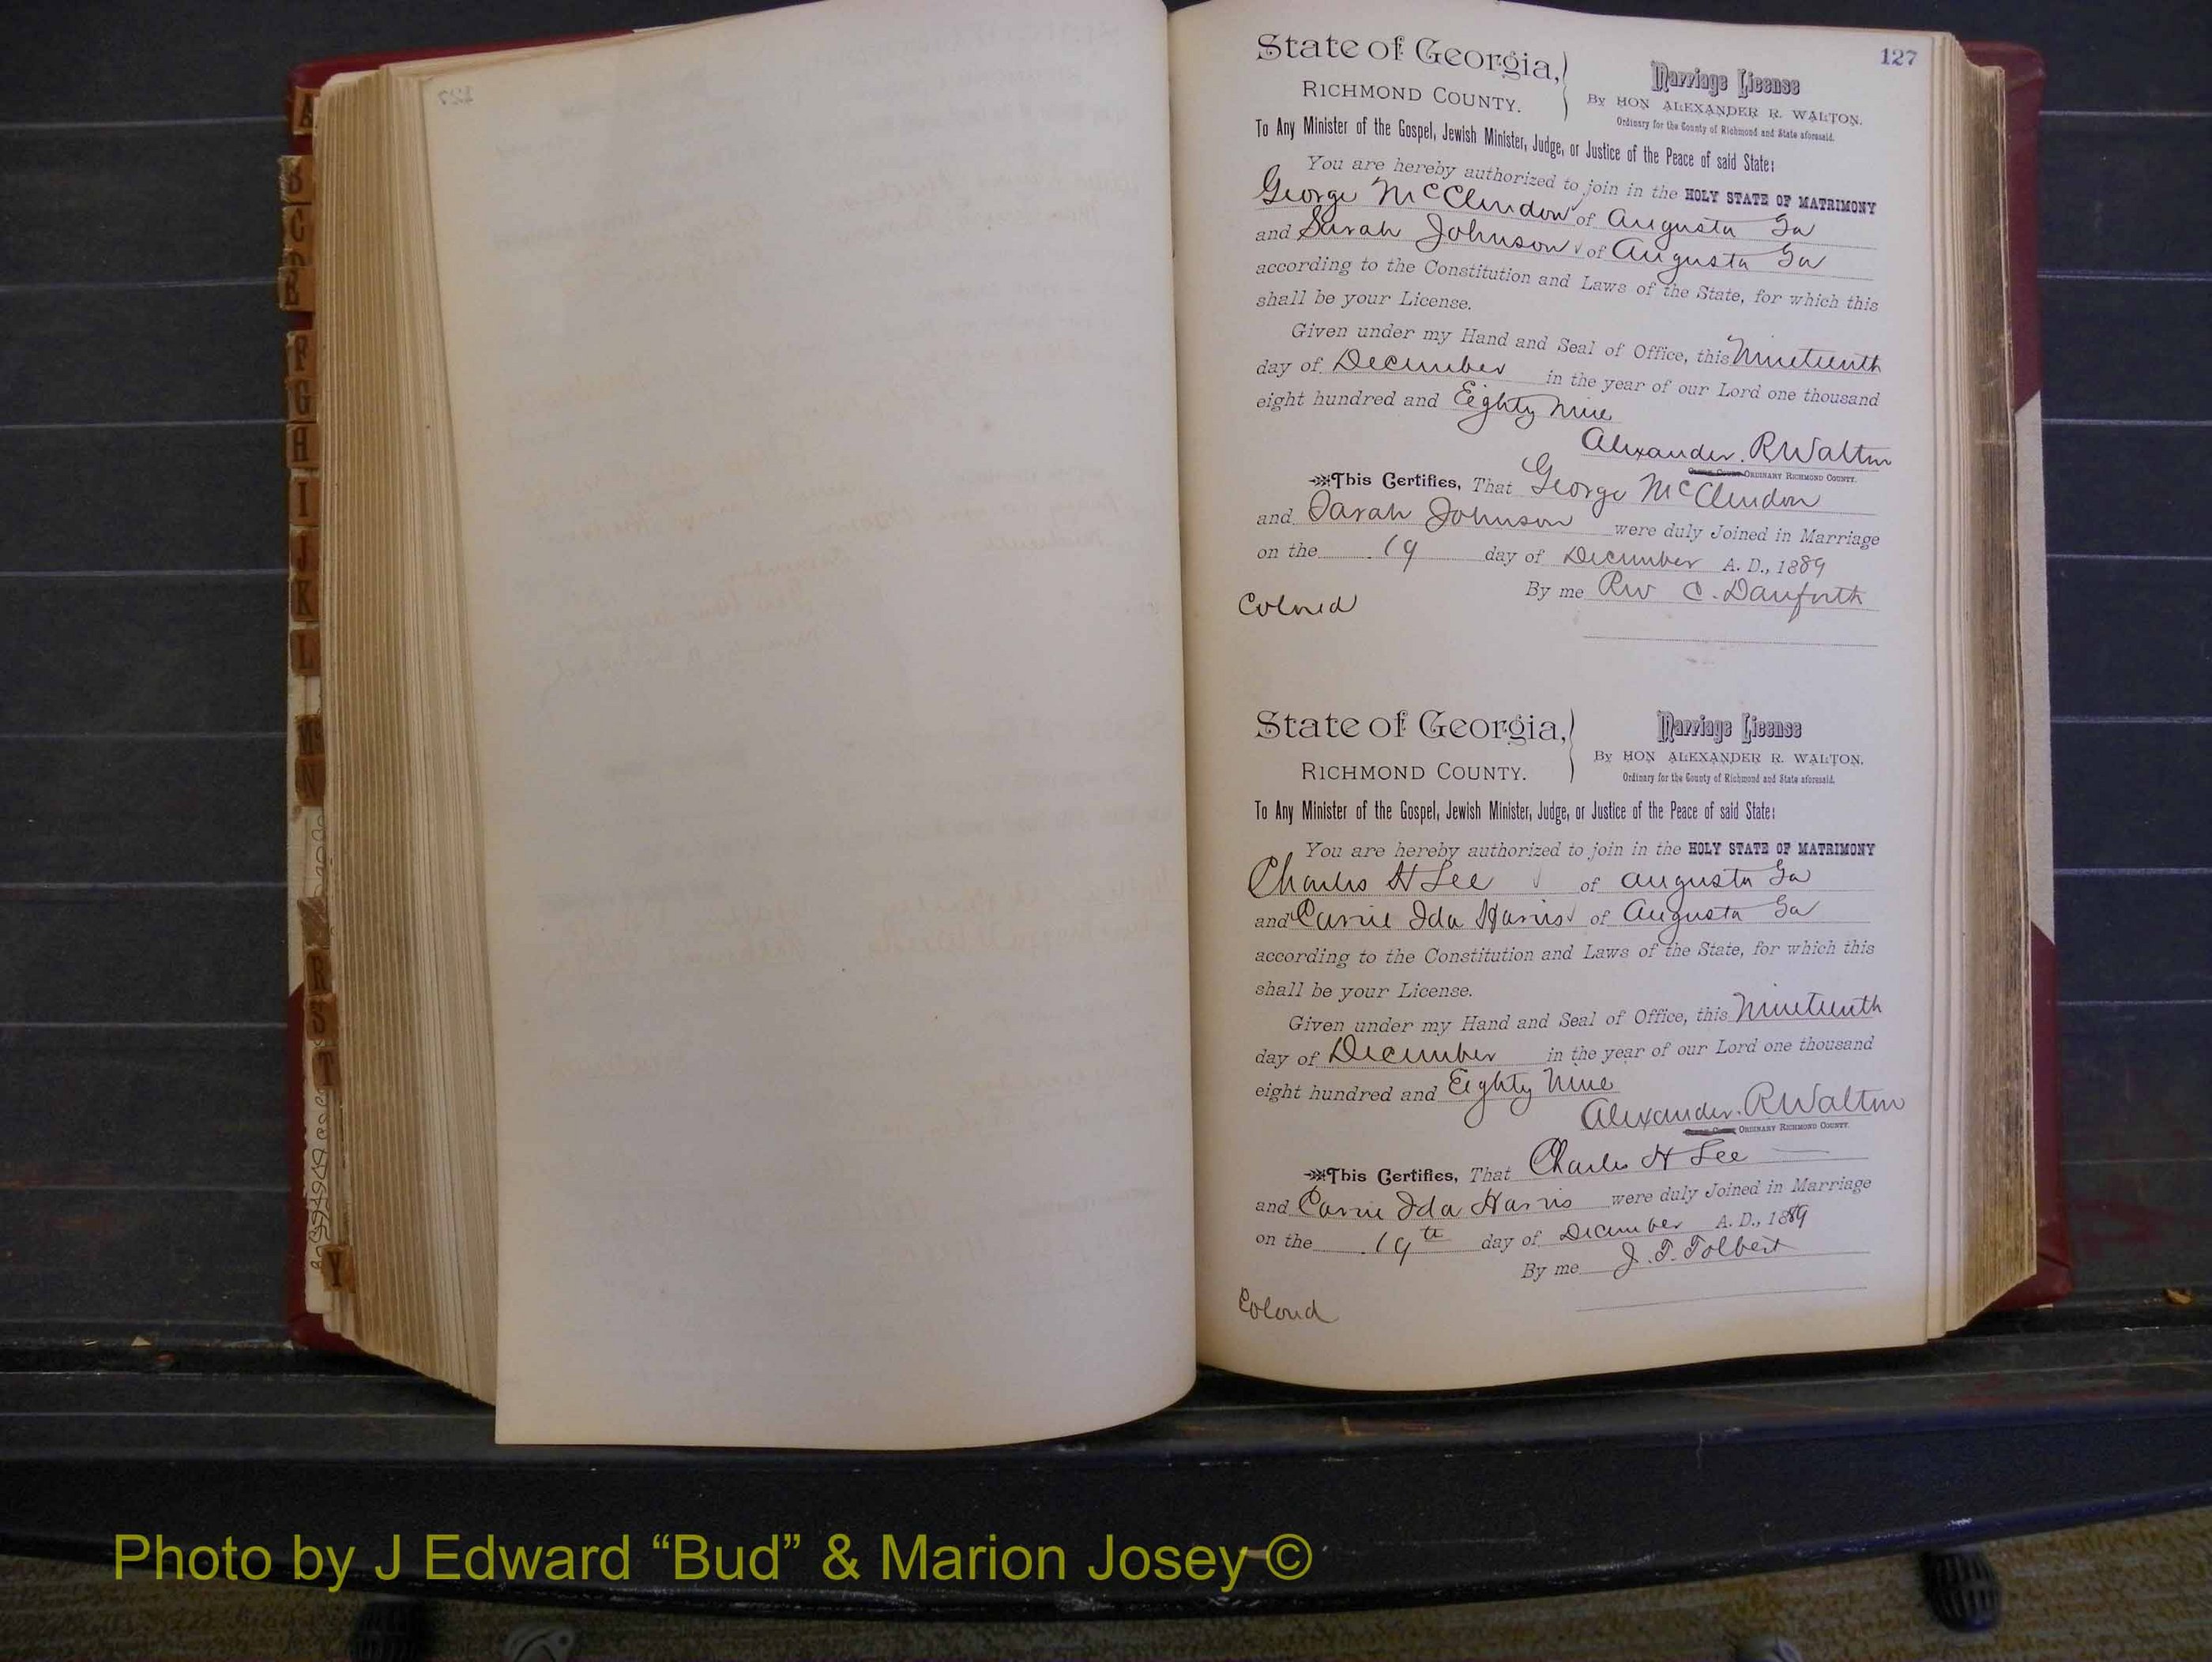 127
State of Georgia,
RICHMOND COUNTY.
Marriage License
By HON ALEXANDER R. WALTON,
Ordinary for the County of Richmond and State aforesaid.
To Any Minister of the Gospel, Jewish Minister, Judge, or Justice of the Peace of said State:
You are hereby authorized to join in the HOLY STATE OF MATRIMONY
George McClendon of Augusta Ga
and Sarah Johnson of Augusta Ga
according to the Constitution and Laws of the State, for which this
shall be your License.
Given under my Hand and Seal of Office, this Nineteenth
day of December in the year of our Lord one thousand
eight hundred and Eighty Nine
Alexander. R Walton
ORDINARY RICHMOND COUNTY.
This Certifies, That George McClendon
and Sarah Johnson were duly Joined in Marriage
on the 19 day of December A. D., 1889
By me Rev C. Danforth
Colored
State of Georgia,
RICHMOND COUNTY.
Marriage License
By HON ALEXANDER R. WALTON,
Ordinary for the County of Richmond and State aforesaid.
To Any Minister of the Gospel, Jewish Minister, Judge, or Justice of the Peace of said State:
You are hereby authorized to join in the HOLY STATE OF MATRIMONY
Charles H Lee of Augusta Ga
and Carrie Ida Harris of Augusta Ga
according to the Constitution and Laws of the State, for which this
shall be your License.
Given under my Hand and Seal of Office, this Nineteenth
day of December in the year of our Lord one thousand
eight hundred and Eighty Nine
Alexander. R Walton
ORDINARY RICHMOND COUNTY.
This Certifies, That Charles H Lee
and Carrie Ida Harris were duly Joined in Marriage
on the 19th day of December A. D., 1889
By me J. T. Tolbert
Colored
A
B
C
D
E
F
G
H
I
J
K
L
Mc
N
R
S
T
Y
Photo by J Edward “Bud” & Marion Josey ©